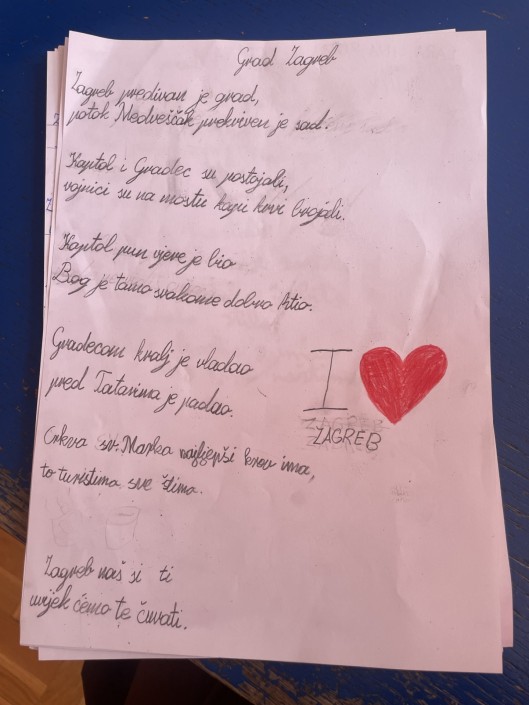 Grad Zagreb
Zagreb predivan je grad,
potok Medveščak prekriven je sad.
Kaptol i Gradec su postojali,
vojnici su na mostu kapi krvi brojali.
Kaptol pun vjere je bio
Bog je tamo svakome dobro htio.
Gradecom kralj je vladao
pred Tatarima je padao.
I
ZAGREB
Crkva sv. Marka najljepši krov ima,
to turistima sve štima.
Zagreb naš si ti
uvijek ćemo te čuvati.